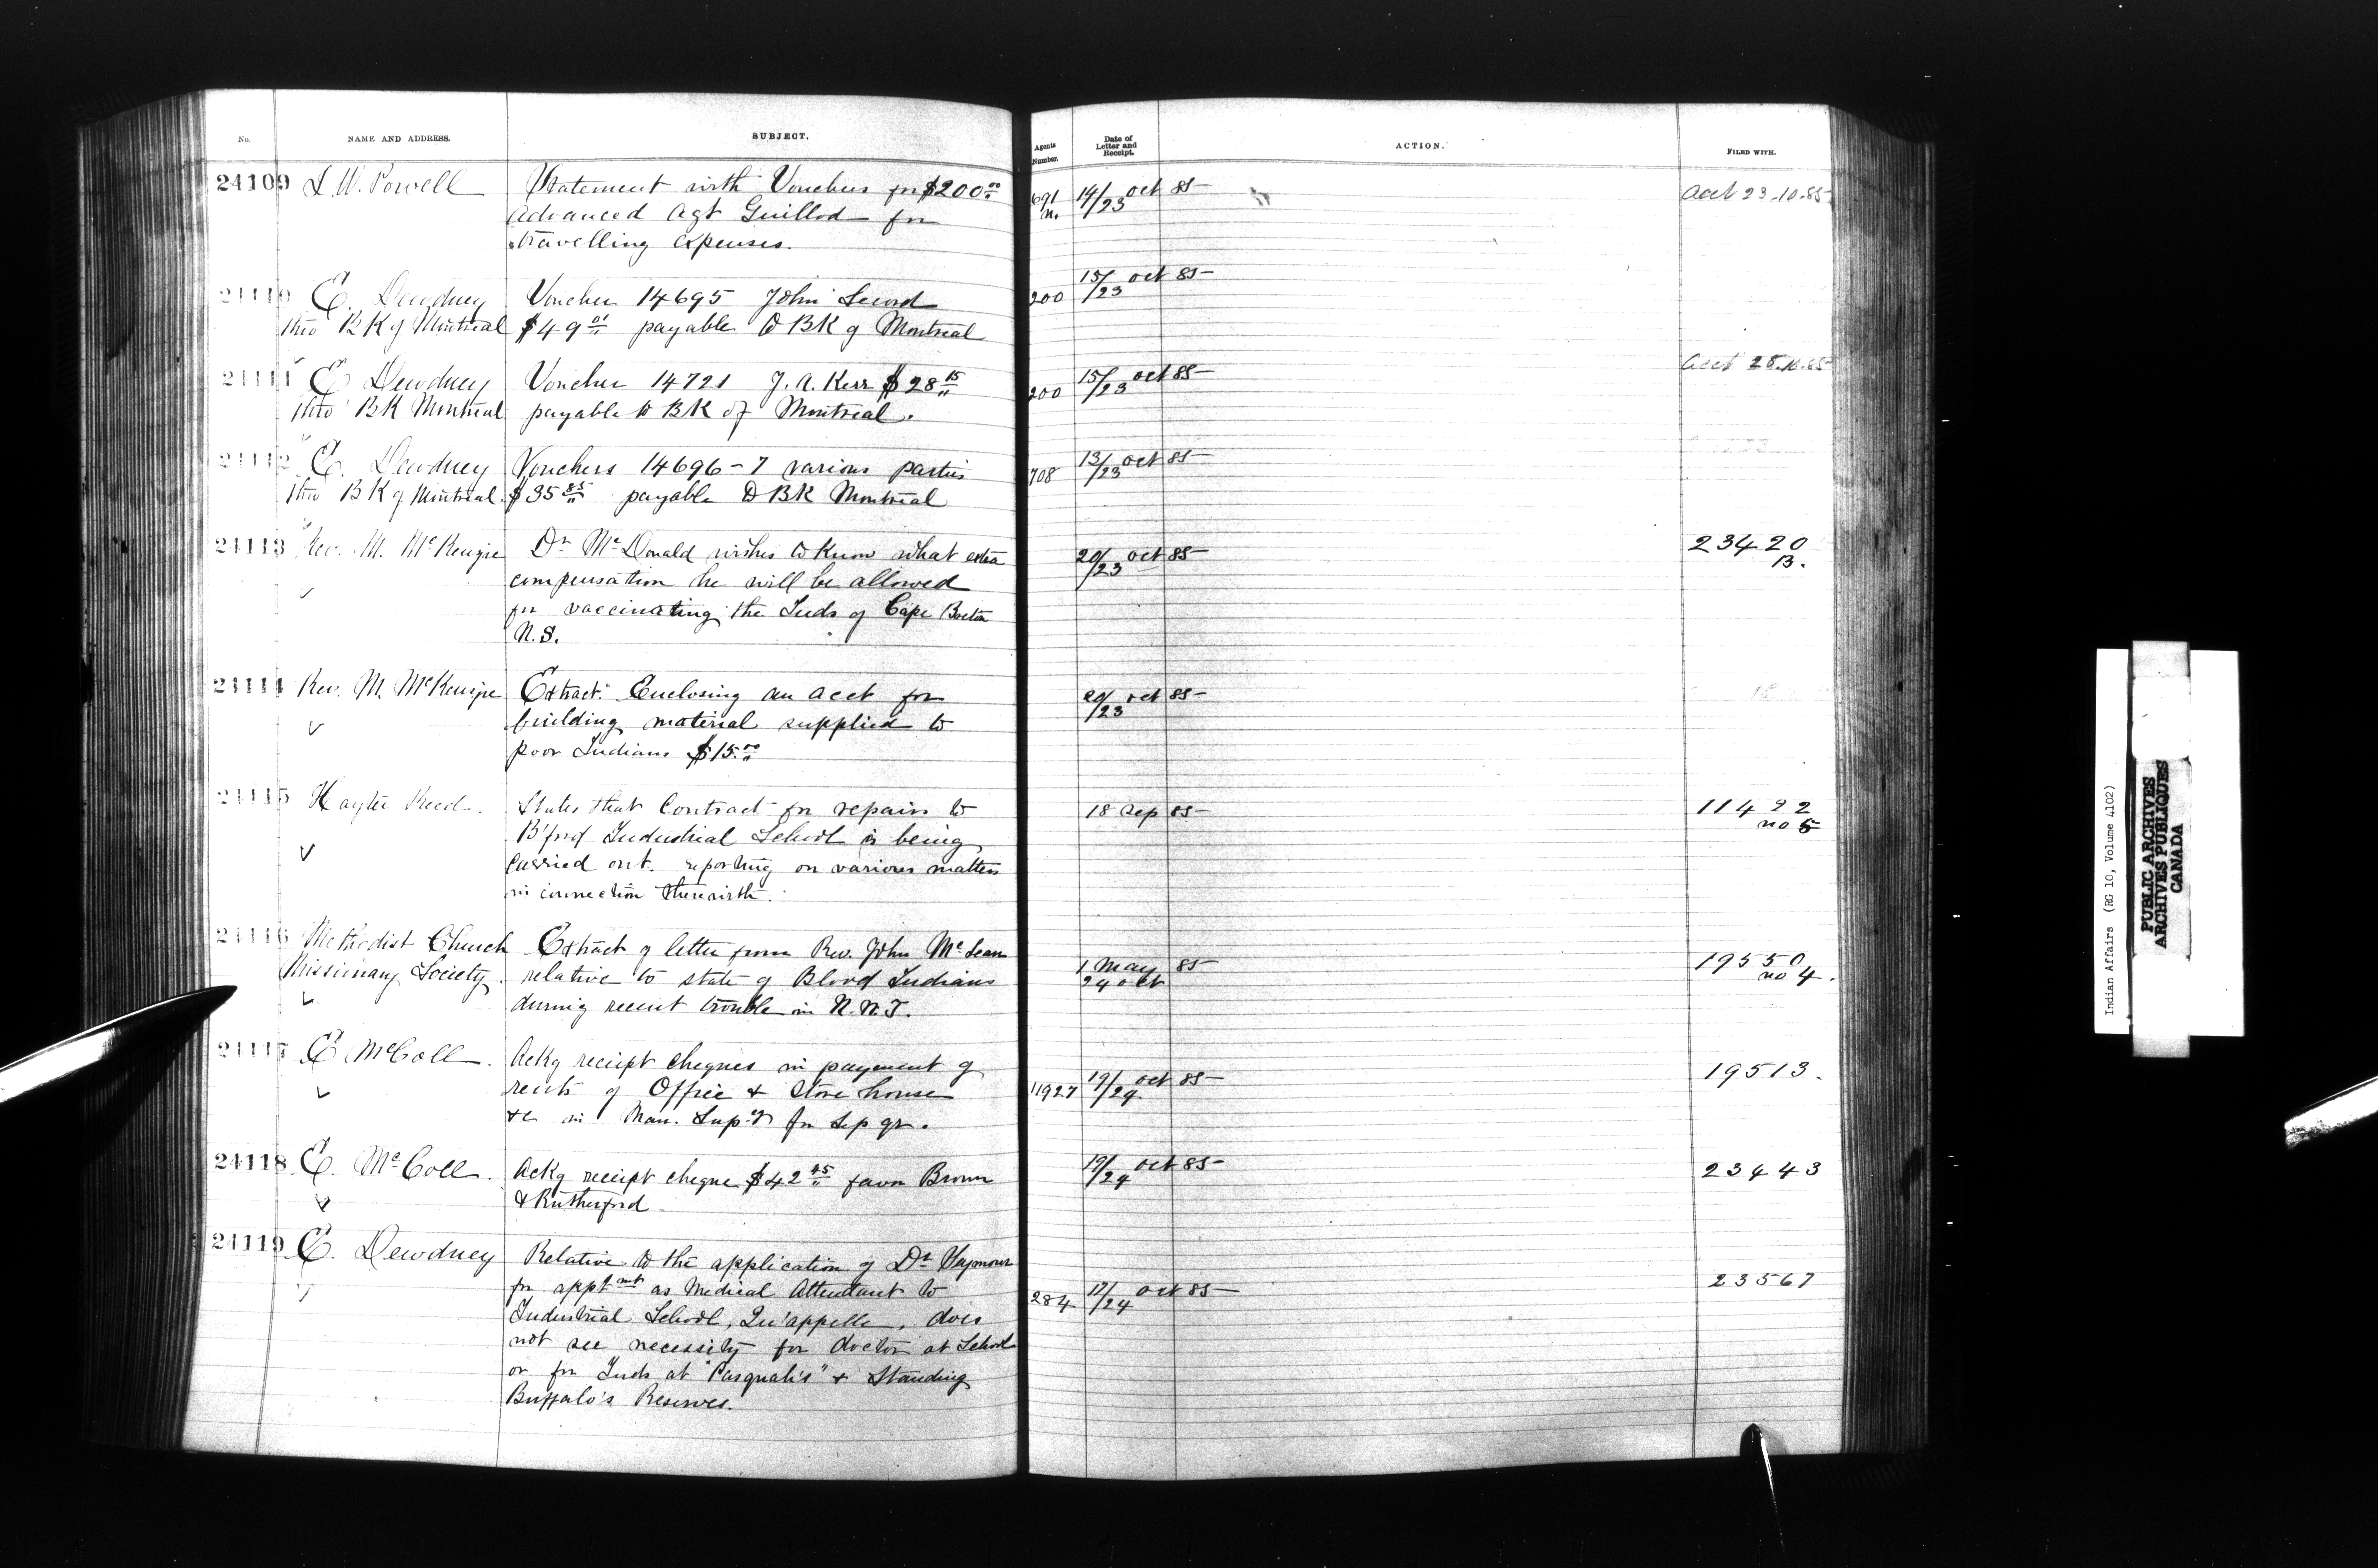 No. NAME AND ADDRESS. SUBJECT. Agents Number. Date of Letter and Receipt. ACTION. FILED WITH.
24109 I. W. Powell Statement with Vouchers for $200.00 691 14/23 Oct 85 Acct 23-10-85
Advanced Agt Guillod for
travelling expenses.
24110 E. Dewdney Voucher 14695 John 200 15/23 Oct 85
thro BK of Montreal $49.01 payable to BK of Montreal
24111 E Dewdney Voucher 14721 J. A. Kerr $28.15 200 15/23 Oct 85 Acct 28.10.85
thro BK Montreal payable to BK of Montreal.
24112 E. Dewdney Vouchers 14696-7 various parties 708 13/23 Oct 85
thro BK of Montreal $35.85 payable to BK Montreal
24113 Rev. M. McKenzie Dr McDonald wishes to know what extra 20/23 Oct 85 23420
compensation he will be allowed B.
for vaccinating the Inds of Cape Breton
N.S.
24114 Rev. M. McKenzie Extract. Enclosing an acct for 20/23 Oct 85
building material supplied to
poor Indians $15.00
24115 Hayter Reed. States that Contract for repairs to 18 Sep 85 11422
B'ford Industrial School is being no 5
carried out. reporting on various matters
in connection therewith.
24116 Methodist Church Extract of letter from Rev. John McLean
Missionary Society. relative to state of Blood Indians 1 May 85 19550
during recent trouble in N.W.T. 24 Oct no 4.
24117 E McColl. Ackg receipt cheques in payment of 19/24 Oct 85 19513.
rents of Office & Store house 11927
&c in Man. Sup-cy for Sep qr.
24118 E. McColl. Ackg receipt cheque $42.45 favor Brown 19/24 Oct 85 23443
& Rutherford
24119 E. Dewdney Relative to the application of Dr Seymour
for apptmt as Medical Attendant to 284 17/24 Oct 85 23567
Industrial School, Qu'appelle, does
not see necessity for doctor at School
or for Inds at "Pasquah's" & Standing
Buffalo's Reserves.
Indian Affairs (RG 10, Volume 4102)
PUBLIC ARCHIVES
ARCHIVES PUBLIQUES
CANADA